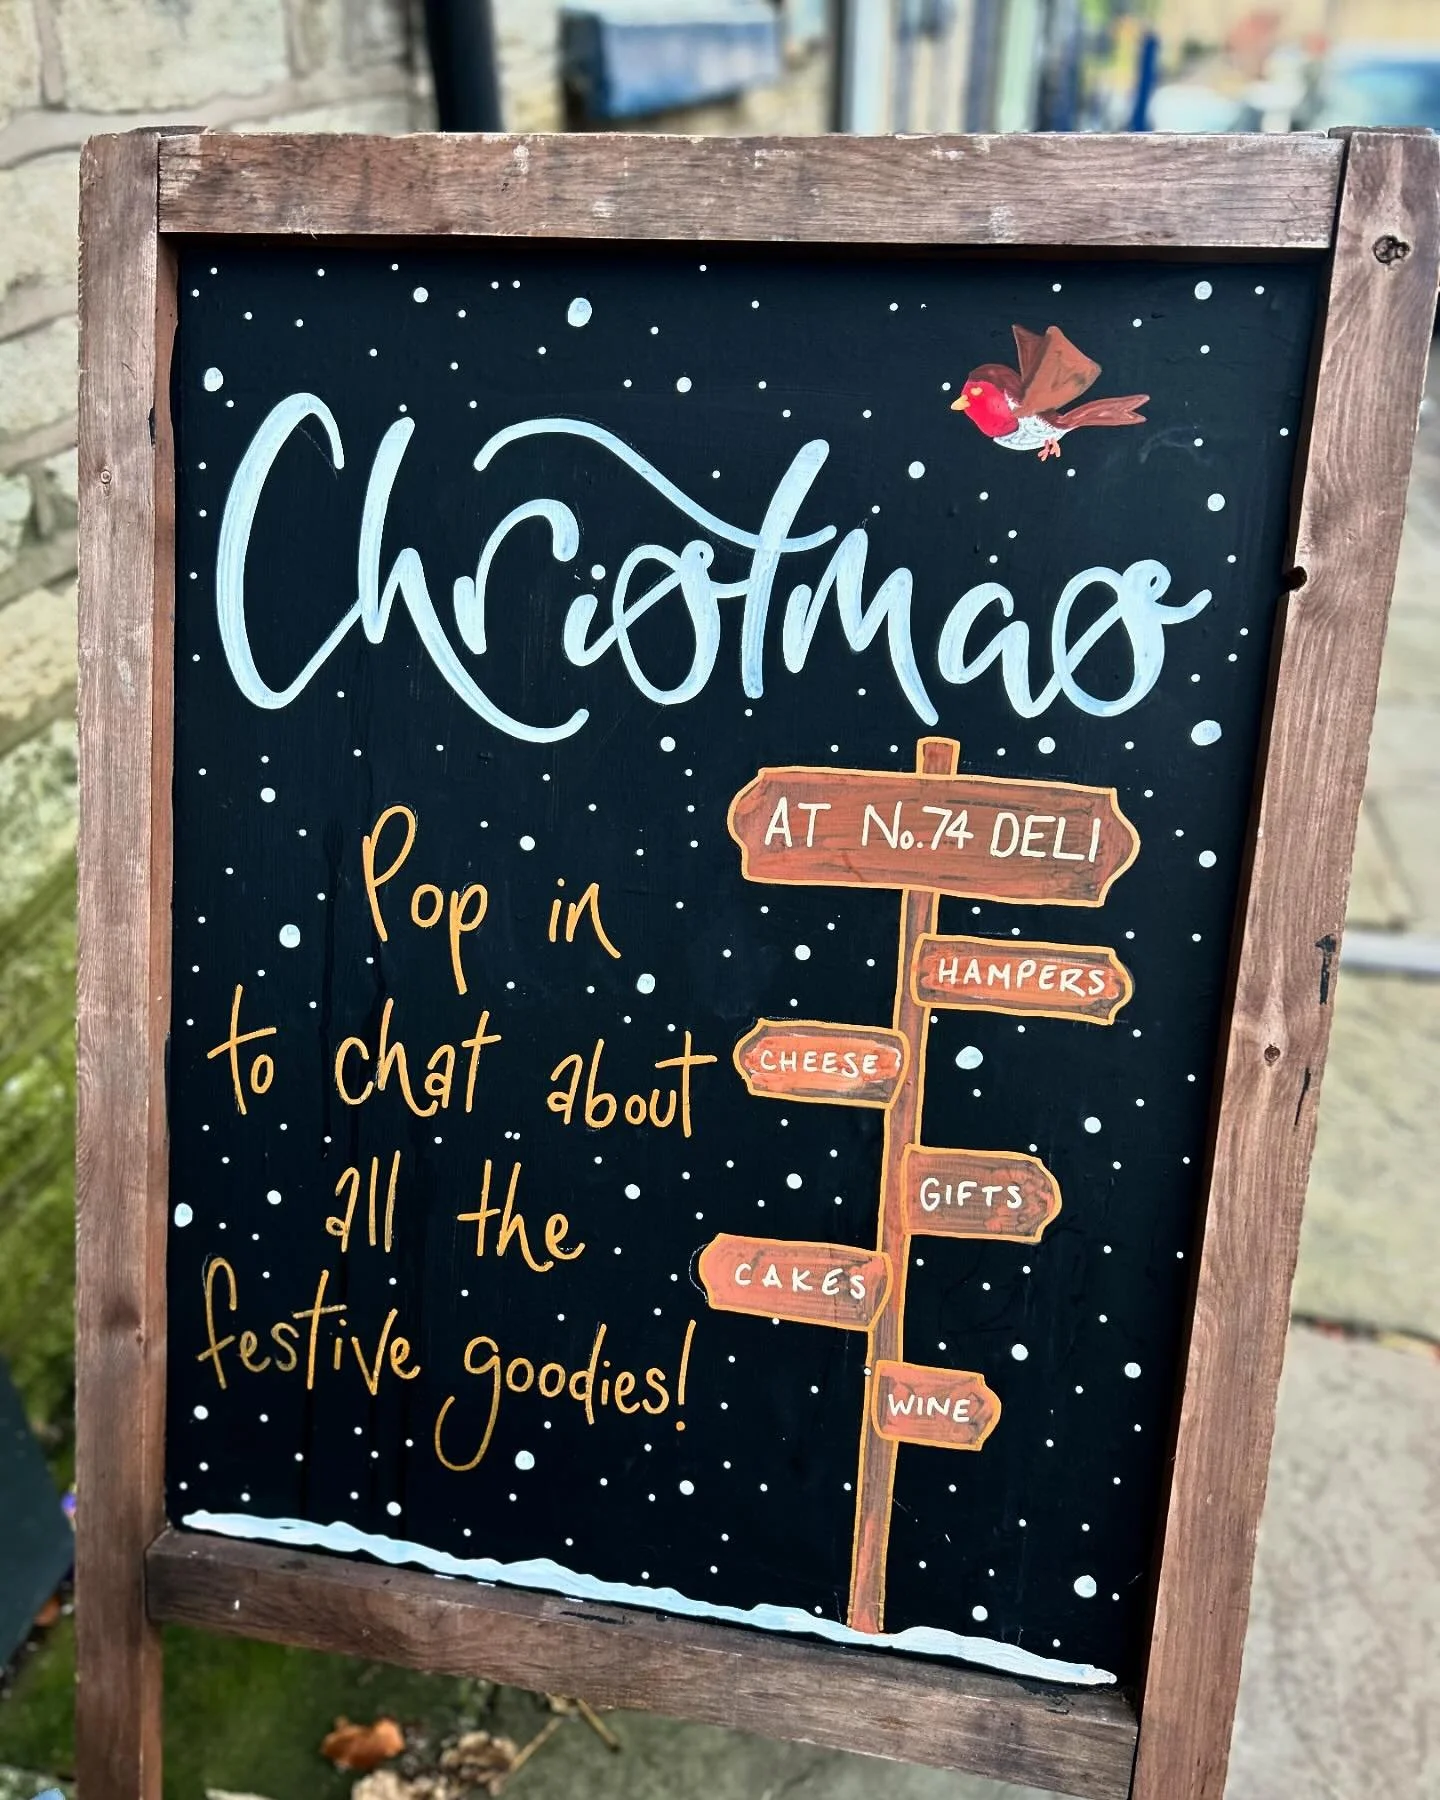 Christmas
AT No.74 DELI
Pop in
to chat about
all the
festive goodies!
HAMPERS
CHEESE
GIFTS
CAKES
WINE